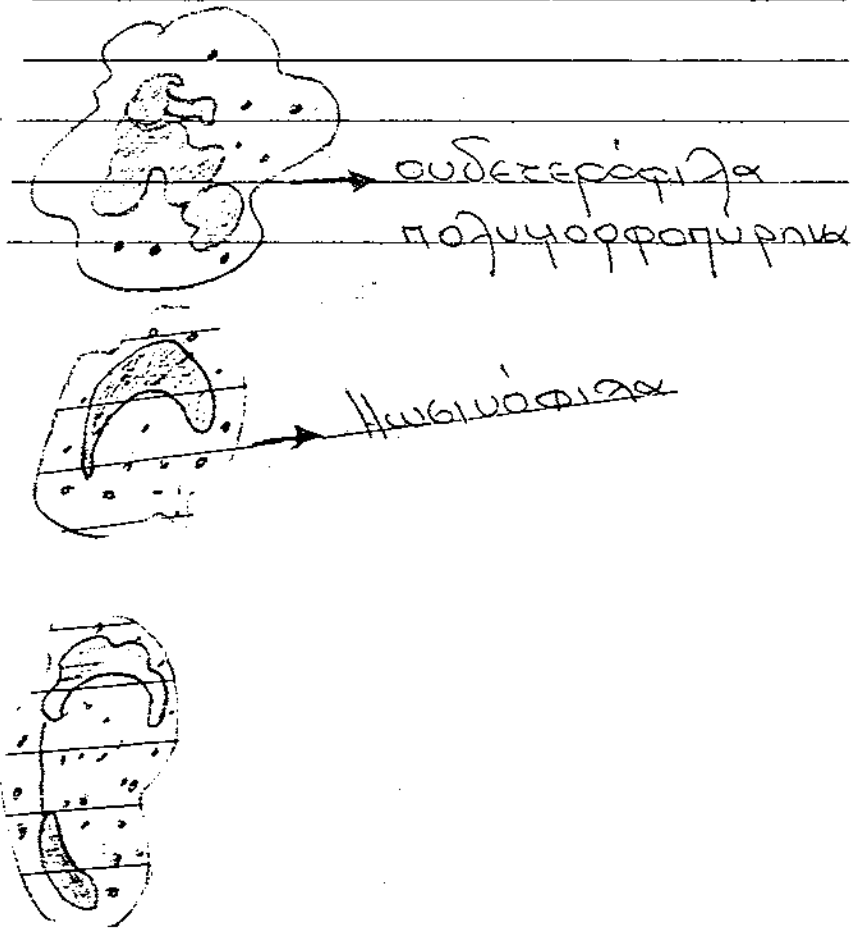 ουδετερόφιλα
πολυμορφοπύρηνα
Ηωσινόφιλα